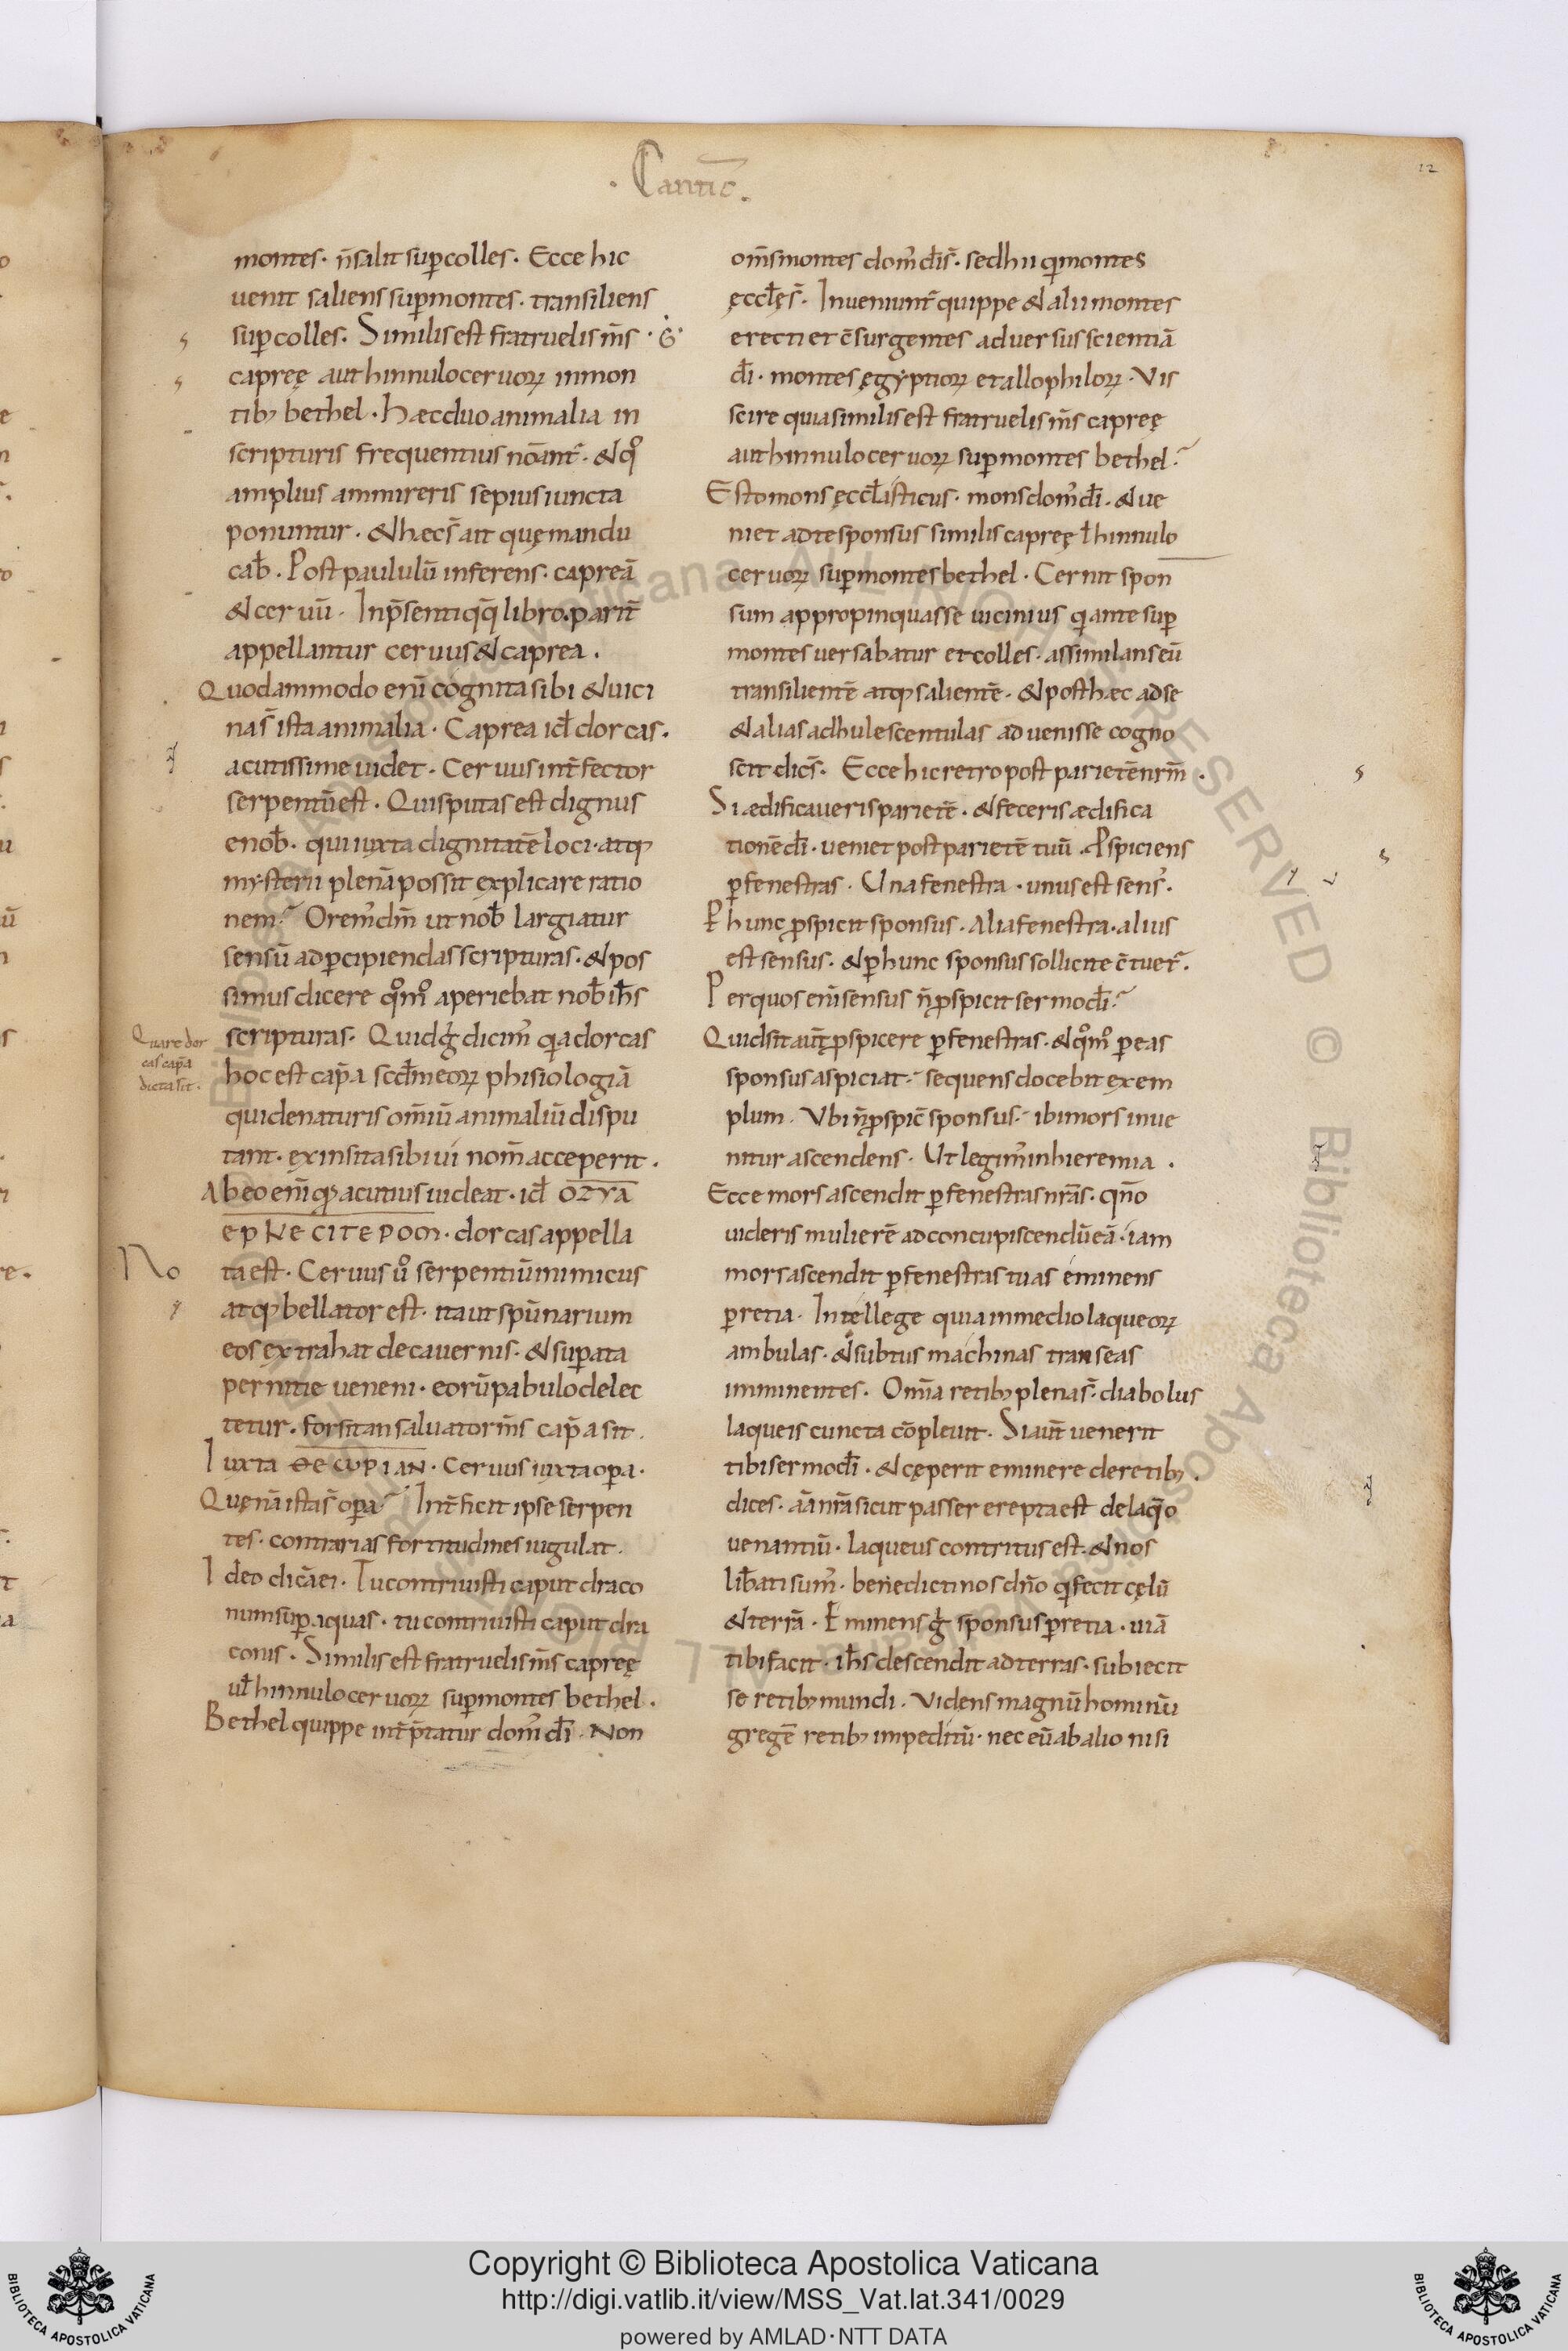 · Cantic̄.
12
montes · n̄ salit sup̱ colles · Ecce hic
uenit saliens sup̱ montes · transiliens
sup̱ colles. Similis est fratruelis m̄s ·
capreę aut hinnulo ceruoꝝ in mon
tibꝫ bethel · Hæc duo animalia in
scripturis frequentius noānt᷒ · & qͦ
amplius ammireris sepius iuncta
ponuntur · & hæc s̄ ait quę mandu
cab̄ · Post paululū inferens · capreā
& ceruū · In p̄senti q̄q̄ libro · parit̄
appellantur ceruus & caprea .
Quodammodo eni̅ cognita sibi & uici
na s̄ ista animalia · Caprea id̄ dorcas .
acutissime uidet · Ceruus int̄fector
serpentū est · Quis putas est dignus
e nob̄ · qui iuxta dignitatē loci · atqꝫ
mysterii plenā possit explicare ratio
nem? Orem᷒ dm̄ ut nob̄ largiatur
sensū ad p̱cipiendas scripturas · & pos
simus dicere qͦmͦ aperiebat nob̄ ih̄s
scripturas · Quid g̊ dicim᷒ qa dorcas
hoc est cap̄a scd̄m eoꝝ phisiologiā
qui de naturis om̄iū animaliū dispu
tant · ex insita sibi ui nom̄ acceperit .
Ab eo eni̅ qꝫ acutius uideat · id̄ OZYA
. dorcas appella
ta est · Ceruus ů serpentiū inimicus
atqꝫ bellator est · ita ut spū narium
eos extrahat de cauernis · & sup̱ata
pernitie ueneni · eorū pabulo delec
tetur · forsitan saluator m̄s cap̄a sit .
Iuxta ΘΕ · Ceruus iuxta op̱a ·
Quęnā ista s̄ op̱a? Int̄ficit ipse serpen
tes · contrarias fortitudines iugulat ·
Ideo dicā ei · Tu contriuisti caput draco
num sup̱ aquas · tu contriuisti caput dra
conis · Similis est fratruelis m̄s capreę
ul̄ hinnulo ceruoꝝ sup̱ montes bethel .
Bethel quippe int̄p̄tatur dom᷒ dī · Non
Quare dor
cas cap̄a
dicta sit ·
No
om̄s montes dom᷒ dī s̄ · sed hii qi montes
ęccl̄ę s̄ · Inueniunt᷒ quippe & alii montes
erecti et c̄surgentes aduersus scientiā
dī · montes ęgyptioꝝ et allophiloꝝ · Vis
scire quia similis est fratruelis m̄s capreę
aut hinnulo ceruoꝝ sup̱ montes bethel?
Esto mons ęccl̄iasticus · mons dom᷒ dī · & ue
niet ad te sponsus similis capreę l̄ hinnulo
ceruoꝝ sup̱ montes bethel · Cernit spon
sum appropinquasse uicinius qi ante sup̱
montes uersabatur et colles · assimilans eū
transilientē atqꝫ salientē · & post hæc ad se
& alias adhulescentulas aduenisse cogno
scit dic̄s · Ecce hic retro post parietē nrm̄ .
Si ædificaueris parietē · & feceris ædifica
tionē dī · ueniet post parietē tuū · Ꝓspiciens
p̱ fenestras · Una fenestra · unus est sens᷒ ·
P̱ hunc ꝓspicit sponsus · Alia fenestra · alius
est sensus · & p̱ hunc sponsus sollicite c̄tuet᷒ .
Per quos eni̅ sensus n̄ ꝓspicit sermo dī?
Quid sit aut̄ ꝓspicere p̱ fenestras · & qͦmͦ p̱ eas
sponsus aspiciat? sequens docebit exem
plum · Vbi n̄ ꝓspic̄ sponsus · ibi mors inue
nitur ascendens · Ut legim᷒ in hieremia .
Ecce mors ascendit p̱ fenestras nrās · qn̄o
uideris mulierē ad concupiscendū eā · iam
mors ascendit p̱ fenestras tuas eminens
p̱ retia · Intellege quia in medio laqueoꝝ
ambulas · & subtus machinas transeas
imminentes · Omīa retibꝫ plena s̄ · diabolus
laqueis cuncta cōpleuit · Si aut̄ uenerit
tibi sermo dī · & cęperit eminere de retibꝫ .
dices · aīa nrā sicut passer erepta est de laq̄o
uenantiū · laqueus contritus est · & nos
lib̄ati sum᷒ · benedicti nos dn̄o qi fecit cęlū
& terrā · Eminens g̊ sponsus p̱ retia · uiā
tibi facit · ih̄s descendit ad terras · subiecit
se retibꝫ mundi · Videns magnū hominū
gregē retibꝫ impeditū · nec eū ab alio nisi
Copyright © Biblioteca Apostolica Vaticana
http://digi.vatlib.it/view/MSS_Vat.lat.341/0029
powered by AMLAD·NTT DATA
BIBLIOTECA APOSTOLICA VATICANA
BIBLIOTECA APOSTOLICA VATICANA